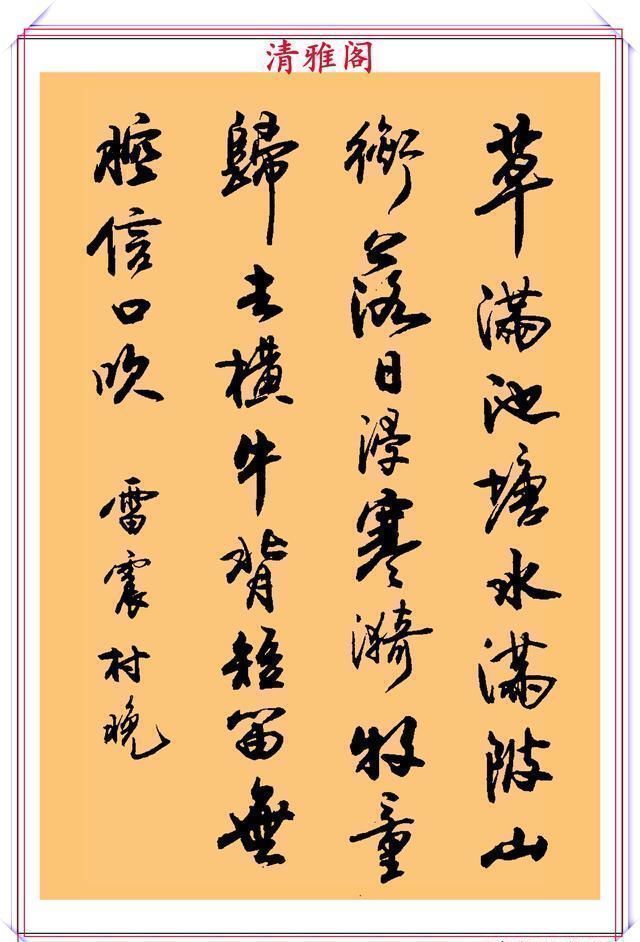 清雅阁
草满池塘水满陂山
衔落日浸寒漪牧童
歸去横牛背短笛無
腔信口吹 雷震村晚